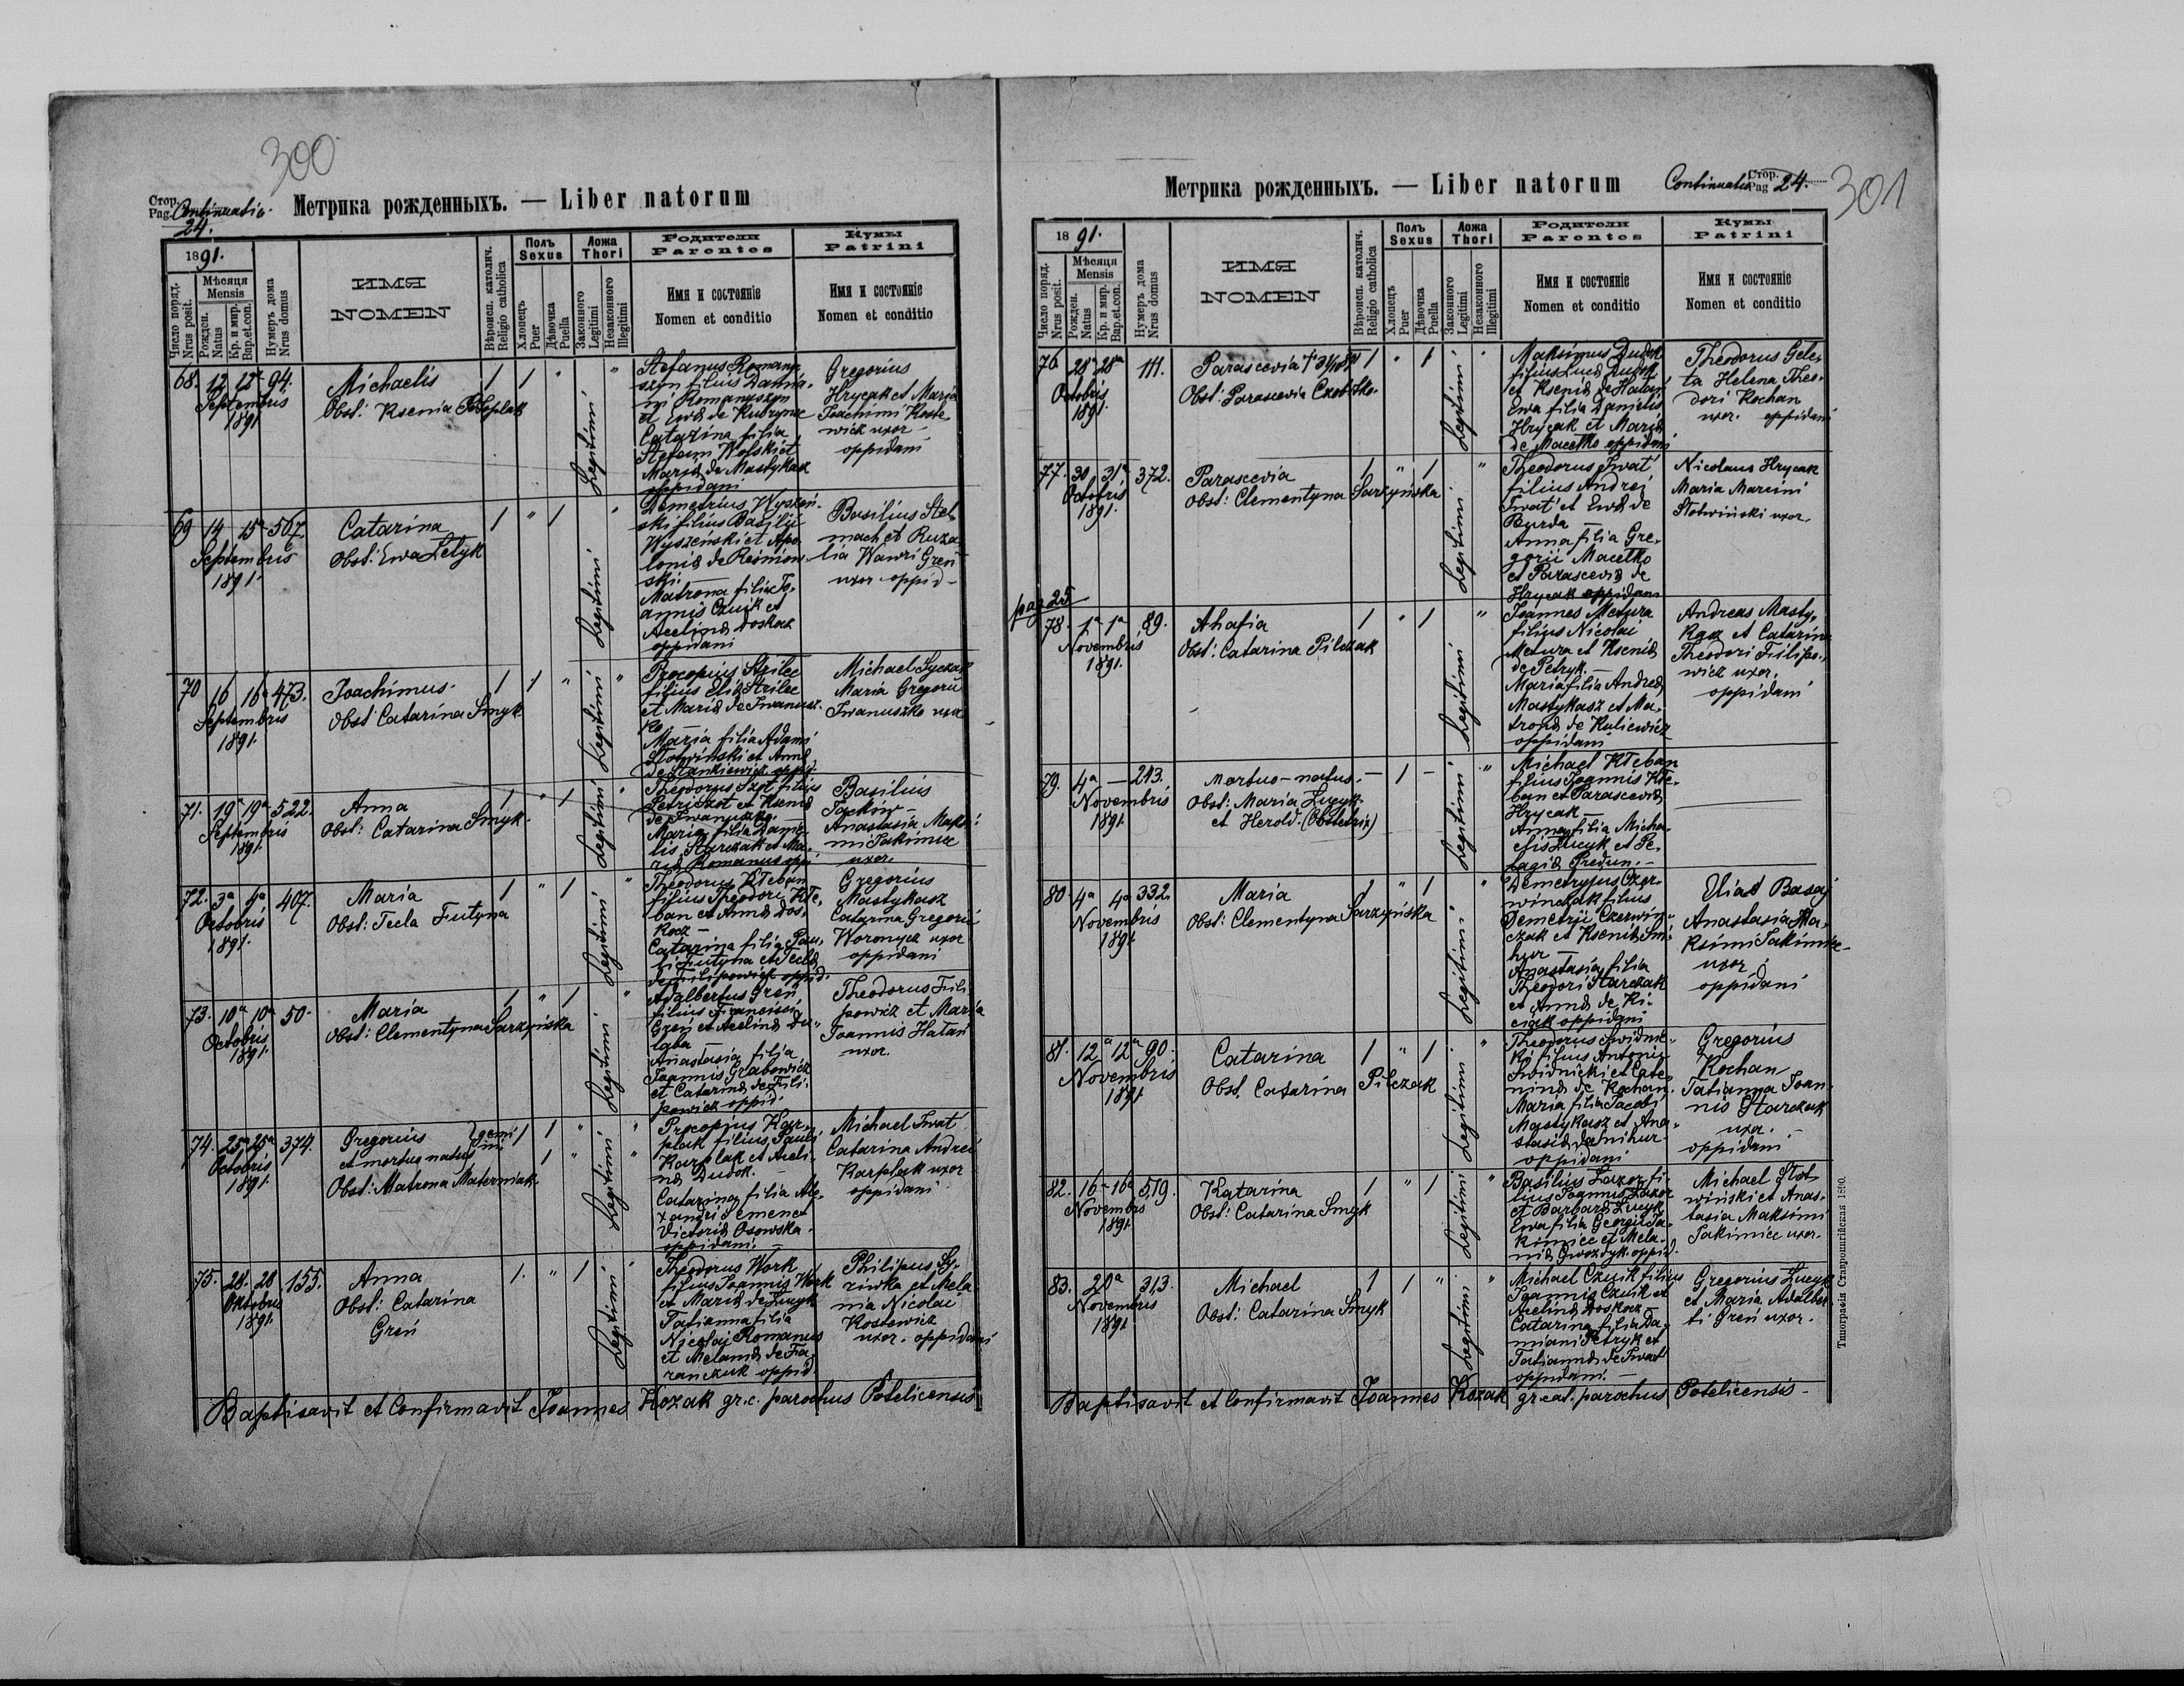 300
Стор.
Pag. Continuatio.
24.
Метрика рожденныхъ. — Liber natorum
1891.
Число поряд.
Nrus posit.
Мѣсяця
Mensis
Рожден.
Natus
Кр. и мир.
Bap. et. con.
Нумеръ дома
Nrus domus
ИМЯ
NOMEN
Вѣроисп. католич.
Religio catholica
Полъ
Sexus
Хлопець
Puer
Дѣвочка
Puella
Ложа
Thori
Законного
Legitimi
Незаконного
Illegitimi
Родители
Parentes
Имя и состояніе
Nomen et conditio
Кумы
Patrini
Имя и состояніе
Nomen et conditio
68. 12 12ª 94.
Septembris
1891
Michaelis
Obst: Ksenia
1 1 " Legitimi "
Stefanus Romany-
szyn filius Dami-
ni Romanyszyn
et Ewa de
Catarina filia
Stefani Wolski et
Maria de Mastykasz
oppidani
Gregorius
Hrycak et Maria
Joachimi Koste-
wicz uxor -
oppidani
69 14 15ª 567.
Septembris
1891.
Catarina
Obst: Ewa Letyk
1 " 1 Legitimi "
Demetrius Wyszeń-
ski filius Basilii
Wyszeński et Apo-
lonia de
ski. -
Matrona filia Jo-
annis Czuik et
Acelina Doskacz
oppidani
Basilius Stel-
mach et Ruza-
lia Wawri Greń
uxor oppid-
70 16 16ª 473.
Septembris
1891.
Joachimus.
Obst: Catarina Smyk.
1 1 " Legitimi "
Procopius Strilec
filius Elia Strilec
et Maria de Iwanusz-
ko -
Maria filia Adami
Słotwiński et Anna
de Stankiewicz oppid.
Michael Syczak
Maria Gregorii
Iwanuszko uxor
71. 19ª 19ª 522.
Septembris
1891.
Anna
Obst: Catarina Smyk.
1 " 1 Legitimi "
Theodorus Szot filius
Petri Szot et Ksenia
de Iwanuszko.
Maria filia Danie-
lis Starczak et Ma-
ria Romanus oppi.
Basilius
Jackiw -
Anastasia Maksi-
mi Jakimice
uxor.
72. 3ª 4ª 407.
Octobris
1891.
Maria
Obst: Tecla Futyna
1 " 1 Legitimi "
Theodorus Kłeban
filius Theodori Kłe-
ban et Anna Dos-
kocz -
Catarina filia Pau-
li Futyna et Tecla
de Filipowicz oppid.
Gregorius
Mastykasz
Catarina Gregorii
Woronycz uxor
oppidani
73. 10ª 10ª 50-
Octobris
1891.
Maria
Obst: Clementyna Sarzyńska
1 " 1 Legitimi "
Adalbertus Greń
filius Francisci
Greń et Acelina
Anastasia filia
Joannis Grabowicz
et Catarina de Fili-
powicz oppid.
Theodorus Fili-
powicz et Maria
Joannis Hatań
uxor.
74. 25ª 25ª 374.
Octobris
1891
Gregorius } gemi-
et mortuo natus } ni
Obst: Matrona Materniak.
1 1 "
1 " Legitimi "
Procopius Kar-
plak filius Pauli
Karplak et Aceli-
na Dudok. -
Catarina filia Ale-
xandri Semen et
Victoria Osowska
oppidani. -
Michael Iwat
Catarina Andrei
Karplak uxor
oppidani
75. 28. 28 155.
Oktobris
1891.
Anna
Obst: Catarina
Greń
1. " 1 Legitimi "
Theodorus Work
filius Joannis Work
et Maria de Lucyk
Tatianna filia
Nicolai Romanus
et Melania de Ta-
ranczuk oppid.
Philipus Sy-
riwka et Mela-
nia Nicolai
Kostewicz
uxor. oppidani
Baptisavit et Confirmavit Joannes Kozak gr. c. parochus Potelicensis
Метрика рожденныхъ. — Liber natorum
Continuatio Стор.
Pag 24.
301
1891.
Число поряд.
Nrus posit.
Мѣсяця
Mensis
Рожден.
Natus
Кр. и мир.
Bap. et. con.
Нумеръ дома
Nrus domus
ИМЯ
NOMEN
Вѣроисп. католич.
Religio catholica
Полъ
Sexus
Хлопецъ
Puer
Дѣвочка
Puella
Ложа
Thori
Законного
Legitimi
Незаконного
Illegitimi
Родители
Parentes
Имя и состояніе
Nomen et conditio
Кумы
Patrini
Имя и состояніе
Nomen et conditio
76 28ª 28ª 111.
Octobris
1891.
Parascevia
Obst: Parascevia
1 " 1 Legitimi "
Maksimus Dudok
filius Luca Dudok
et Ksenia de Hatań
Ewa filia Danielis
Hrycak et Maria
de Macełko oppidani
Theodorus Gele-
ta Helena Theo-
dori Kochan
uxor. oppidani
77. 30 31ª 372.
Octobris
1891.
Parascevia
Obst: Clementyna Sarzyńska
1 " 1 Legitimi "
Theodorus Iwat
filius Andrei
Iwat et Ewa de
Burda -
Anna filia Gre-
gorii Macełko
et Parascevia de
Hrycak oppidani
Nicolaus Hrycak
Maria Marcini
Słotwiński uxor.
pag 25
78. 1ª 1ª 89.
Novembris
1891.
Ahafia
Obst: Catarina Pilczak
1 " 1 Legitimi "
Joannes Metura
filius Nicolai
Metura et Ksenia
de Petryk. -
Maria filia Andrea
Mastykasz et Ma-
trona de Kuliewicz
oppidani
Andreas Masty-
kasz et Catarina
Theodori Filipo-
wicz uxor.
oppidani
79. 4ª — 213.
Novembris
1891.
Mortuo-natus. -
Obst: Maria Lucyk.
et Herold. (Obstetrix)
1 - Legitimi "
Michael Kłeban
filius Joannis Kłe-
ban et Parascevia
Hrycak -
Anna filia Micha-
elis Lucyk et Pe-
lagia Predun. -
80 4ª 4ª 332.
Novembris
1891
Maria
Obst: Clementyna Sarzyńska
1 " 1 Legitimi "
Demetryus Czer-
winczak filius
Demetrii Czerwin-
czak et Ksenia
Anastasia filia
Theodori Starczak
et Anna de Ki-
ciak oppidani
Elias Basaj
Anastasia Ma-
ksimi Jakimice-
uxor.
oppidani
81. 12ª 12ª 90-
Novembris
1891
Catarina
Obst. Catarina Pilczak
1 " 1 Legitimi "
Theodorus Swidnic-
ki filius Antonii
Swidnicki et Cate-
rina de Kochan.
Maria filia Jacobi
Mastykasz et Ana-
stasia de
oppidani
Gregorius
Kochan
Tatianna Joan-
nis Starczak
uxor. -
oppidani
82. 16- 16ª 519.
Novembris
1891.
Katarina
Obst: Catarina Smyk
1 " 1 Legitimi "
Basilius Lazor fi-
lius Joannis Lazor
et Barbara Lucyk
Ewa filia Georgii Ja-
kimice et Mela-
nia Gwozdyk oppid.
Michael Słot-
wiński et Anas-
tasia Maksimi
Jakimice uxor.
83. 20ª 313.
Novembris
1891
Michael
Obst: Catarina Smyk
1 1 " Legitimi "
Michael Czuik filius
Joannis Czuik et
Acelina Doskocz -
Catarina filia Da-
miani Petryk et
Tatianna de Iwat
oppidani. -
Gregorius Lucyk
et Maria Adalber-
ti Greń uxor.
Baptisavit et Confirmavit Joannes Kozak gr. cat. parochus Potelicensis -
Типографія Ставропигійская 1890.